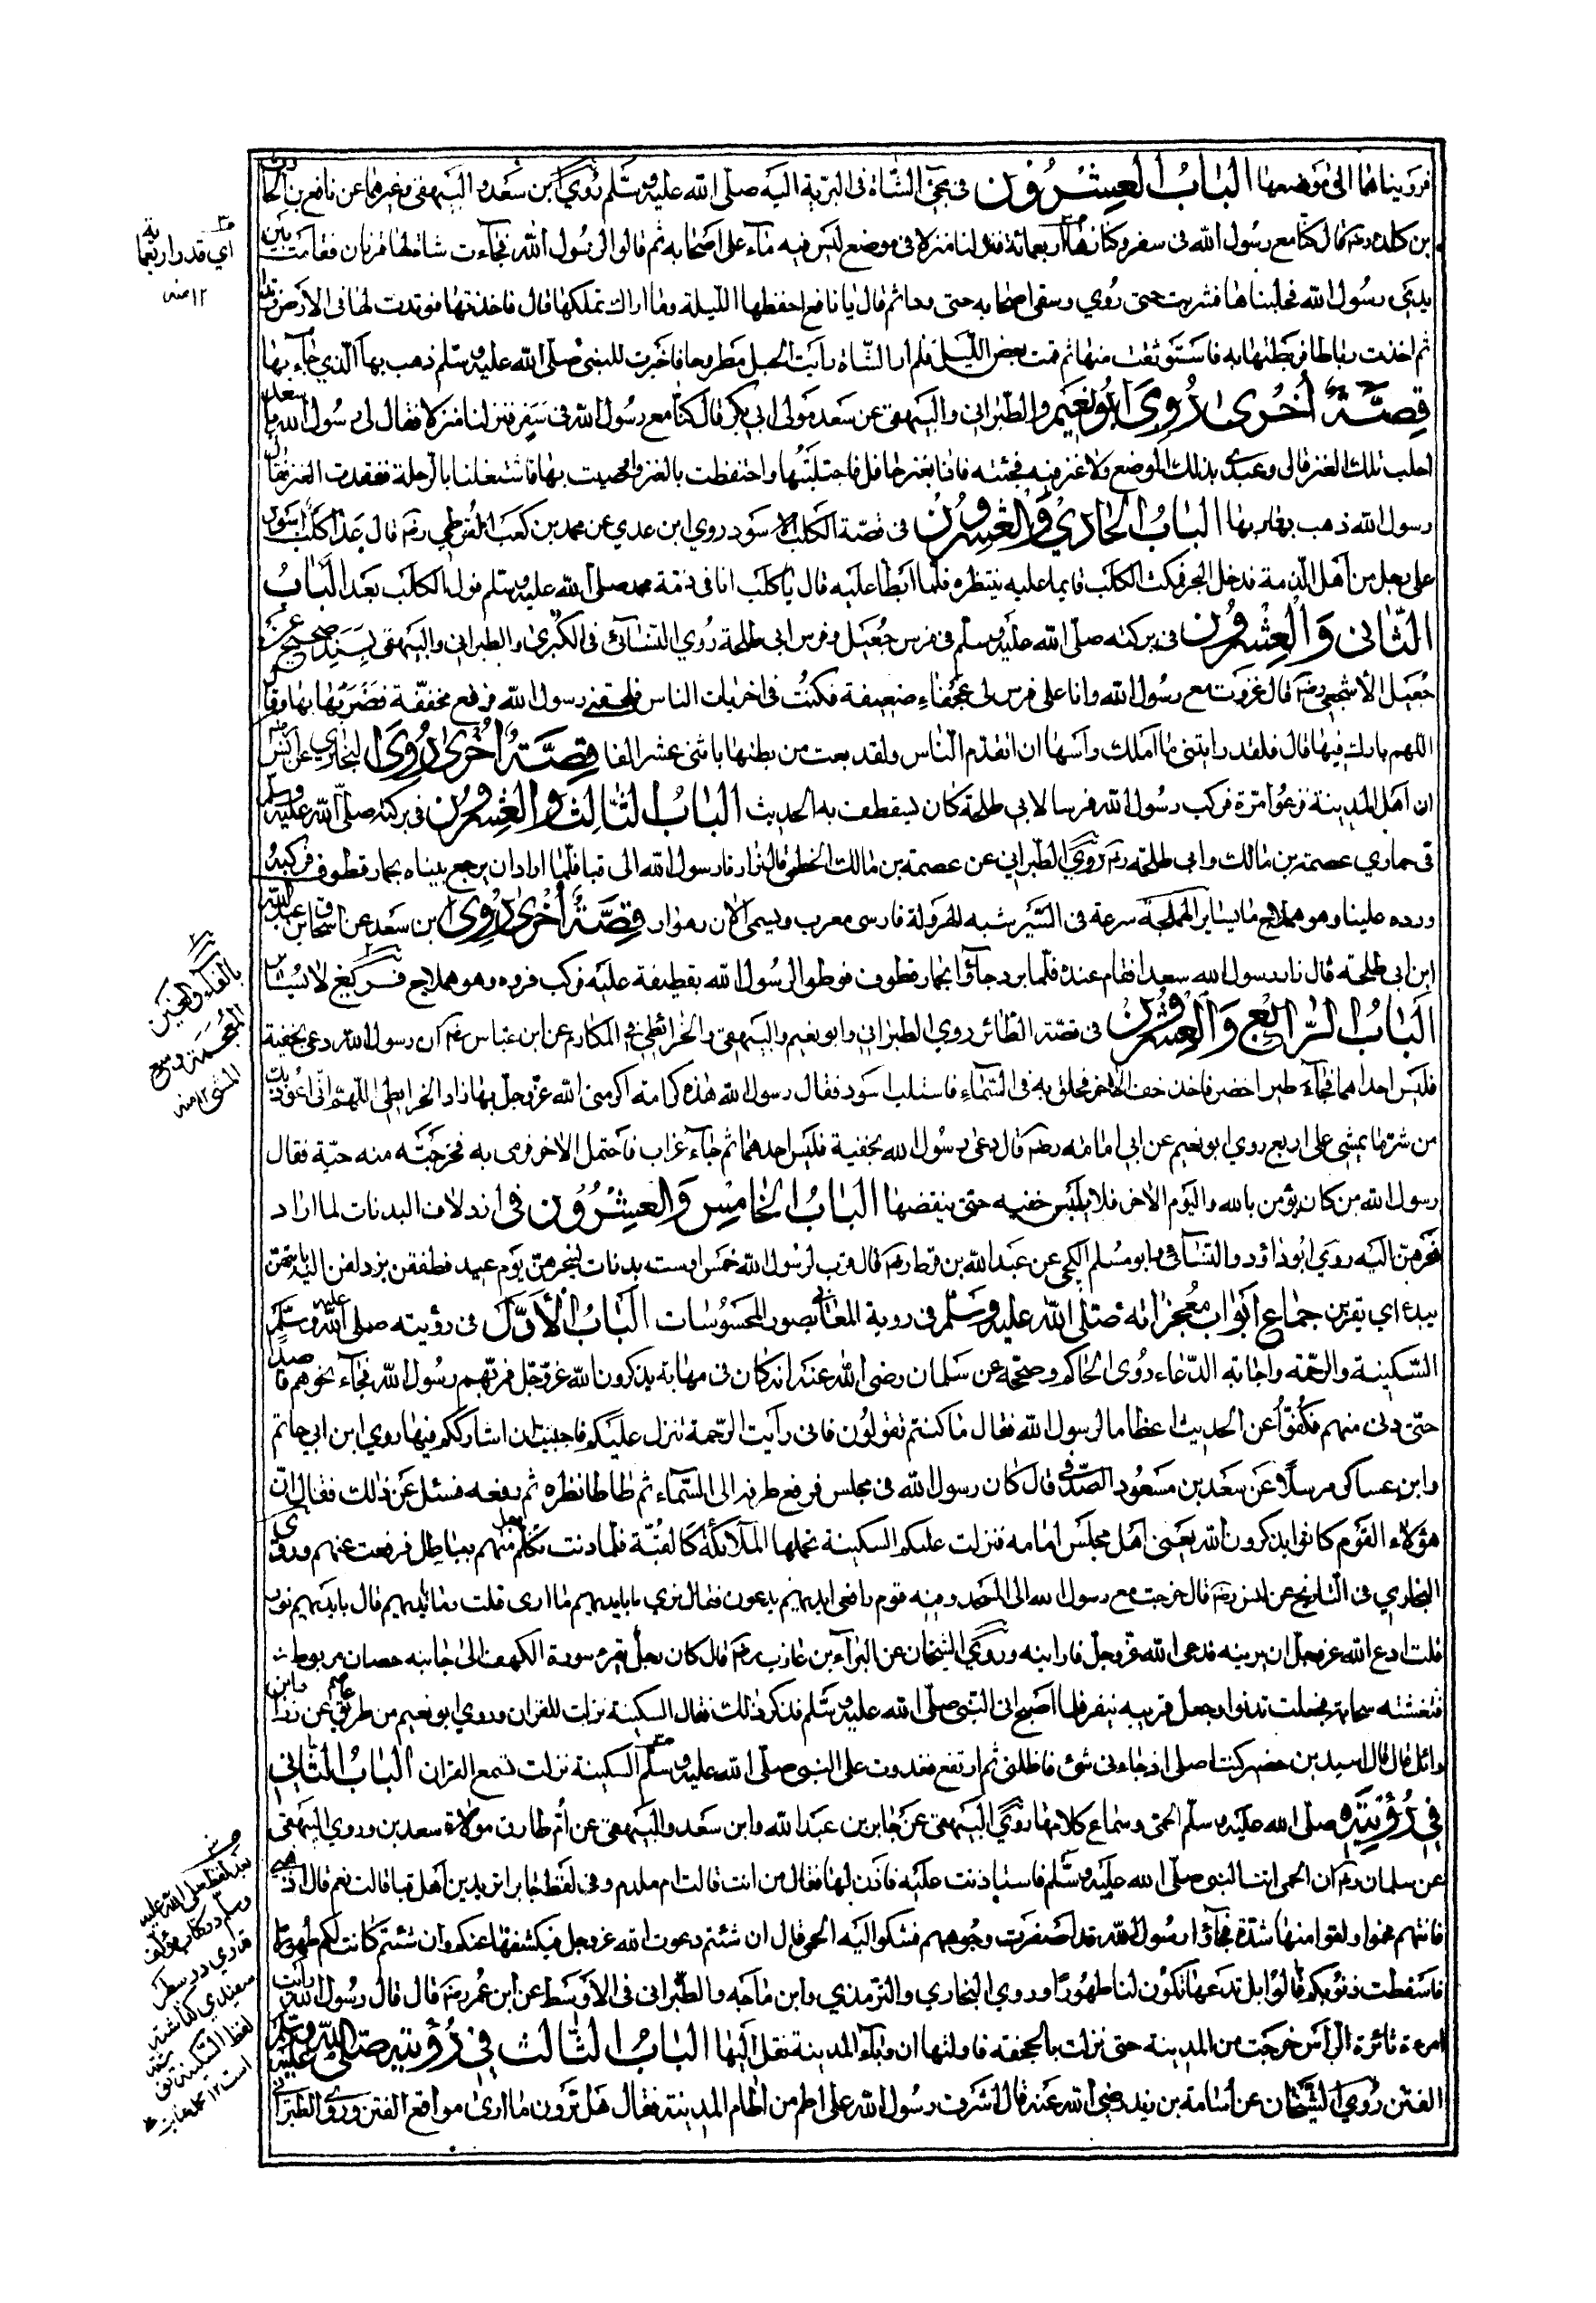 فرددناهما الى موضعهما الباب العشرون في مجئ الشاة في البرية اليه صلى الله عليه وسلم روي ابن سعد و البيهقي وغيرهما عن نافع بن الحارث
بن كلدة رضه قال كنا مع رسول الله في سفر وكنا زهاء اربعمائة فنزل لنا منزلا في موضع ليس فيه ماء على اصحابه ثم قالوا الرسول الله فجاءت شاة لها قرنان فقامت بين
يدي رسول الله فحلبناها فشربت حتى روي وسقى اصحابه حتى رووا ثم قال يا نافع احفظها الليلة وما اراك تملكها قال فاخذتها فوتدت لها في الارض وتدا
ثم اخذت رباطا فربطتها به فاستوثقت منها ثم قمت بعض الليل فلم ار الشاة رايت الحبل مطروحا فاخبرت للنبي صلى الله عليه وسلم ذهب بها الذي جاء بها
قصة اخرى روي ابو نعيم والطبراني والبيهقي عن سعد مولى ابي بكر قال كنا مع رسول الله في سفر فنزلنا منزلا فقال لي رسول الله يا سعد
احلب تلك العنز قال وعهدي بذلك الموضع ولا عنز فيه فجئته فاذا بعنز حافل فاحتلبتها واحتفظت بالعنز واوصيت بها فاشتغلنا بالرحلة ففقدت العنز فقال
رسول الله ذهب بها ربها الباب الحادي والعشرون في قصة الكلب الاسود روي ابن عدي عن محمد بن كعب القرظي رضه قال عدا كلب اسود
على رجل من اهل الذمة فدخل الحجر فمكث الكلب قايما عليه ينتظره فلما ابطا عليه قال يا كلب انا في ذمة محمد صلى الله عليه وسلم فولى الكلب بعد الباب
الثاني والعشرون في بركته صلى الله عليه وسلم في فرس جعيل وفرس ابي طلحة روي النسائي في الكبرى والطبراني والبيهقي بسند صحيح عن
جعيل الاشجعي رضه قال غزوت مع رسول الله وانا على فرس لي عجفاء ضعيفة فكنت في اخريات الناس فلحقني رسول الله فرفع مخفقة فضربها بها وقال
اللهم بارك فيها قال فلقد رايتني ما املك راسها ان اتقدم الناس ولقد بعت من بطنها باثني عشر الفا قصة اخرى روي البخاري عن انس رضه
ان اهل المدينة فزعوا مرة فركب رسول الله فرسا لابي طلحة كان يقطف به الحديث الباب الثالث والعشرون في بركته صلى الله عليه وسلم
في حماري عصمة بن مالك وابي طلحة رضه روي الطبراني عن عصمة بن مالك الخطمي قال زار رسول الله الى قبا فلما اراد ان يرجع جيناه بحمار قطوف فركبه
ورده علينا وهو هملاج ما يساير الهملجة سرعة في السير شبه الهرولة فارسي معرب ويسمى الان رهوار قصة اخرى روي ابن سعد عن اسحاق بن عبد الله
ابن ابي طلحة قال زار رسول الله سعدا فقام عنده فلما برد جاؤا بحمار قطوف فوطوا لرسول الله بقطيفة عليه فركب فرده وهو هملاج فريغ لا يساير
الباب الرابع والعشرون في قصة الطائر روي الطبراني وابو نعيم والبيهقي والخرائطي في المكارم عن ابن عباس رضه ان رسول الله دعى بخفيه
فلبس احداهما فجاء طير اخضر فاخذ خف الاخر فحلق به في السماء فانسلت اسود فقال رسول الله هذه كرامة اكرمني الله عز وجل بها زاد الخرايطي اللهم اني اعوذ بك
من شر ما يمشي على اربع روي ابو نعيم عن ابي امامة رضه قال دعى رسول الله بخفيه فلبس احدهما ثم جاء غراب فاحتمل الاخر فرمى به فخرجت منه حية فقال
رسول الله من كان يؤمن بالله واليوم الاخر فلا يلبس خفيه حتى ينفضها الباب الخامس والعشرون في ازدلاف البدنات لما اراد
نحرهن اليه روي ابو داؤد والنسائي وابو مسلم الكجي عن عبد الله بن قرط رضه قال قرب لرسول الله خمس او ست بدنات لينحرهن يوم عيد فطفقن يزدلفن اليه بايتهن
يبدء اي يقربن جماع ابواب معجزاته صلى الله عليه وسلم في روية المعاني بصور المحسوسات الباب الاول في رؤيته صلى الله عليه وسلم
السكينة والرحمة واجابة الدعاء روى الحاكم وصححه عن سلمان رضي الله عنه انه كان في عصابة يذكرون الله عز وجل فمر بهم رسول الله فجاء نحوهم قاصدا
حتى دنى منهم فكفوا عن الحديث اعظاما لرسول الله فقال ما كنتم تقولون فاني رايت الرحمة تنزل عليكم فاحببت ان اشارككم فيها روي ابن ابي حاتم
وابن عساكر مرسلا عن سعد بن مسعود الصدفي قال كان رسول الله في مجلس فرفع طرفه الى السماء ثم طاطا نظره ثم رفعه فسئل عن ذلك فقال ان
هؤلاء القوم كانوا يذكرون الله يعني اهل مجلس امامه فنزلت عليكم السكينة تحملها الملائكة كالقبة فلما دنت تكلم رجل منهم بباطل فرفعت عنهم وروى
البخاري في التاريخ عن انس رضه قال خرجت مع رسول الله الى المسجد وفيه قوم رافعي ايديهم يدعون فقال ترى ما بايديهم ما ارى قلت وما بايديهم قال بايديهم نور
قلت ادع الله عز وجل ان يرينيه فدعى الله عز وجل فارانيه وروي الشيخان عن البراء بن عازب رضه قال كان رجل يقرء سورة الكهف والى جانبه حصان مربوط
فتغشته سحابة فجعلت تدنوا وجعل فرسه ينفر فلما اصبح اتى النبي صلى الله عليه وسلم فذكر ذلك فقال السكينة نزلت للقران وروي ابو نعيم من طريق عاصم عن زر وابن
وائل قال قال اسيد بن حضير كنت اصلي اذ جاءني شئ فاظلني ثم ارتفع فغدوت على النبي صلى الله عليه وسلم السكينة نزلت تسمع القران الباب الثاني
في رؤيته صلى الله عليه وسلم الحمى وسماع كلامها روي البيهقي عن جابر بن عبد الله وابن سعد والبيهقي عن ام طارق مولاة سعد بن وروي البيهقي
عن سلمان رضه ان الحمى اتت النبي صلى الله عليه وسلم فاستاذنت عليه فاذن لها فقال من انت قالت ام ملدم وفي لفظ جابر اتريدين اهل قبا قالت نعم قال اذهبي
فاتتهم فحموا ولقوا منها شدة فجاؤا رسول الله قد اصفرت وجوههم فشكوا اليه الحمى قال ان شئتم دعوت الله عز وجل فيكشفها عنكم وان شئتم كانت لكم طهورا
فاسقطت ذنوبكم قالوا بل تدعها تكون لنا طهورا وروي البخاري والترمذي وابن ماجه والطبراني في الاوسط عن ابن عمر رضه قال قال رسول الله رايت
امرءة ثائرة الراس خرجت من المدينة حتى نزلت بالجحفة فاولتها ان وباء المدينة نقل اليها الباب الثالث في رؤيته صلى الله عليه وسلم
الفتن روي الشيخان عن اسامة بن زيد رضي الله عنه قال اشرف رسول الله على اطم من اطام المدينة فقال هل ترون ما ارى مواقع الفتن وروى الطبراني
اي قدر اربعماية
١٢ منه
بالفاء والغين
المعجمة وسيع
المشي ١٢ منه
بعد لفظ صلى الله عليه
وسلم در كتاب مؤلف
لفظ السكينة
است ١٢